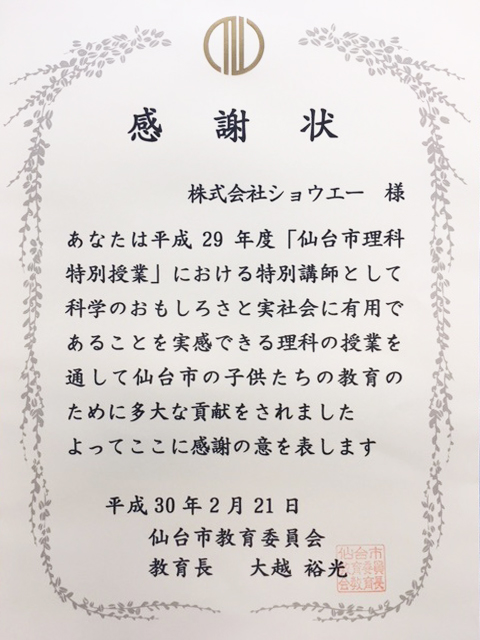 感謝状
株式会社ショウエー 様
あなたは平成 29 年度「仙台市理科
特別授業」における特別講師として
科学のおもしろさと実社会に有用で
あることを実感できる理科の授業を
通して仙台市の子供たちの教育の
ために多大な貢献をされました
よってここに感謝の意を表します
平成 30 年 2 月 21 日
仙台市教育委員会
教育長 大越 裕光
仙台市
教育委員
会教育長